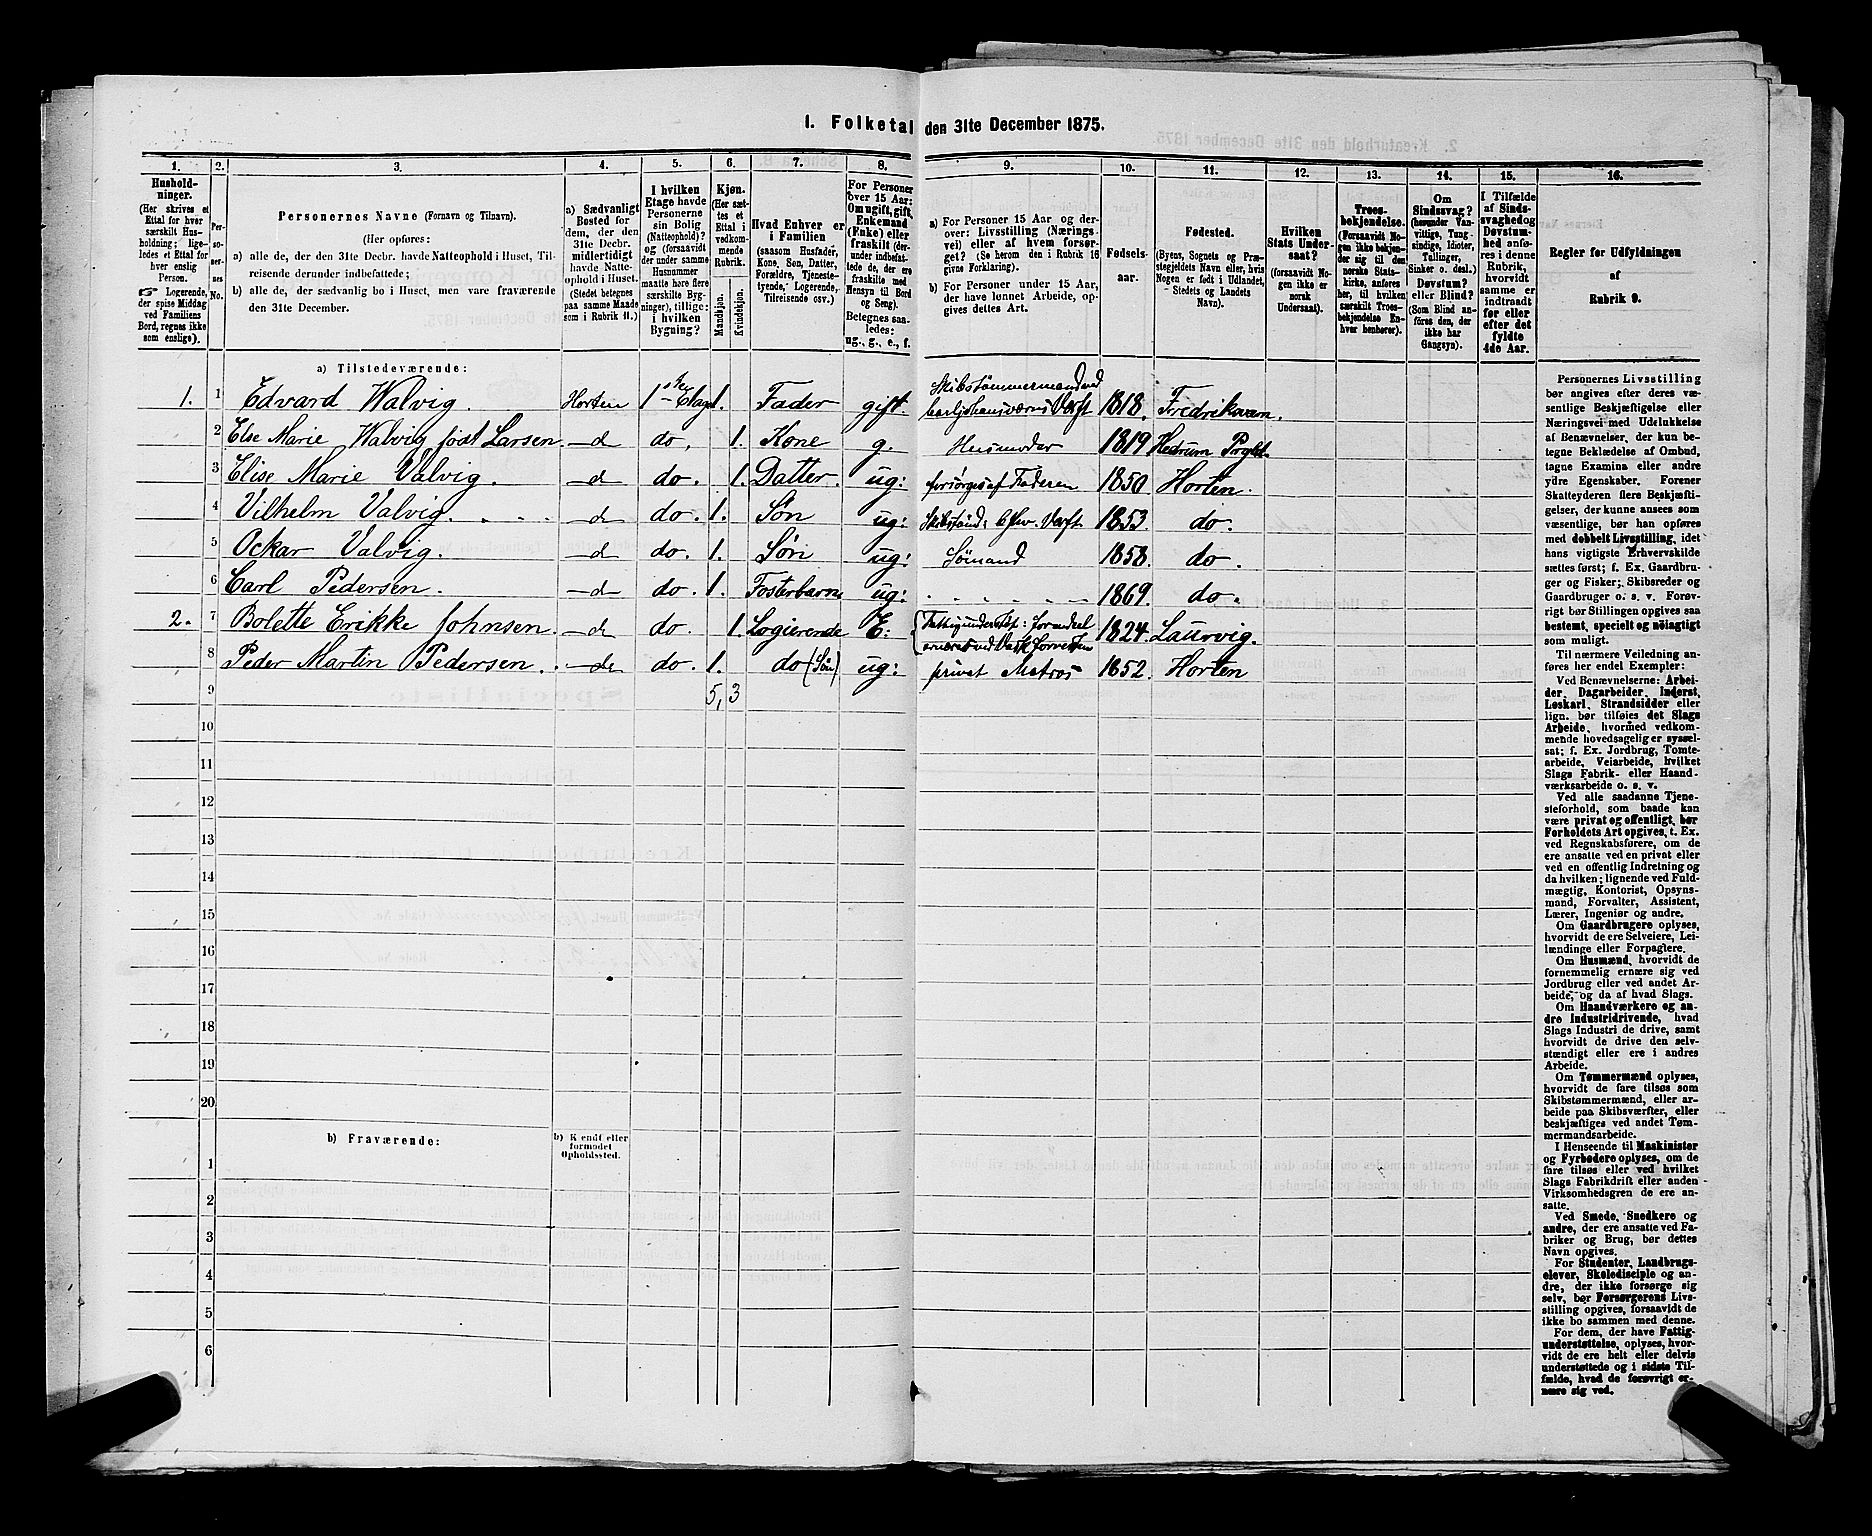 1. Folketal den 31te December 1875.
1. 2. 3. 4. 5. 6. 7. 8. 9. 10. 11. 12. 13. 14. 15. 16.
Hushold-
ninger.
(Her skrives et
Ettal for hver
særskilt Hus-
holdning; lige-
ledes et Ettal for
hver enslig
Person.
☞ Logerende,
der spise Middag
ved Familiens
Bord, regnes ikke
som enslige).
Per-
so-
ner-
nes
No.
Personernes Navne (Fornavn og Tilnavn).
(Her opføres:
a) alle de, der den 31te Decbr. havde Natteophold i Huset, Til-
reisende derunder indbefattede;
b) alle de, der sædvanlig bo i Huset, men vare fraværende
den 31te December.
a) Sædvanligt
Bosted for
dem, der den
31te Decbr.
midlertidigt
havde Natte-
ophold i Huset.
(Stedet betegnes
paa samme Maade
som i Rubrik 11.)
I hvilken
Etage havde
Personerne
sin Bolig
(Natteophold)?
og (forsaavidt
der under samme
Husnummer
maatte høre flere
særskilte Byg-
ninger), tillige:
i hvilken
Bygning?
Kjøn.
(Her sæt-
tes et
Ettal i
vedkom-
mende
Rubrik.
Mandkjøn.
Kvindekjøn.
Hvad Enhver er
i Familien
(saasom Husfader,
Kone, Søn, Datter,
Forældre, Tjeneste-
tyende, Logerende,
Tilreisende osv.)
For Personer
over 15 Aar:
Om ugift, gift,
Enkemand
(Enke) eller
fraskilt (der-
under indbefat-
tede de, der ere
fraskilte med
Hensyn til Bord
og Seng).
Betegnes saa-
ledes:
ug., g., e., f.
a) For Personer 15 Aar og der-
over: Livsstilling (Nærings-
vei) eller af hvem forsør-
get? (Se herom den i Rubrik 16
givne Forklaring).
b) For Personer under 15 Aar,
der have lønnet Arbeide, op-
gives dettes Art.
Fødsels-
aar.
Fødested.
(Byens, Sognets og Præ-
stegjeldets Navn eller, hvis
Nogen er født i Udlandet,
- Stedets og Landets
Navn).
Hvilken
Stats Under-
saat?
(forsaavidt No-
gen ikke er
norsk
Undersaat).
Troes-
bekjendelse.
(Forsaavidt No-
gen ikke bekjen-
der sig til den
norske Stats-
kirke, anføres
her, til hvilken
særskilt Troes-
bekjendelse En-
hver henhører).
Om
Sindssvag?
(herunder Van-
vittige, Tung-
sindige, Idioter,
Tullinger,
Sinker o. desl.)
Døvstum?
eller Blind?
(Som Blind an-
føres den, der
ikke har
Gangsyn).
I Tilfælde
af Sinds-
svaghed og
Døvstum-
hed anfø-
res i denne
Rubrik,
hvorvidt
samme er
indtraadt
før eller
efter det
fyldte
4de Aar.
Regler for Udfyldningen
af
Rubrik 9.
a) Tilstedeværende:
1. 1 Edvard Walvig. Horten 1ste Etage 1. Fader gift. Skibstømmermand ved Carljohansværns Værft 1818. Fredriksværn.
2 Else Marie Walvig født Larsen. — do do. 1. Kone g. Husmoder 1819 Hedrum Prgld.
3 Elise Marie Valvig. — do do. 1. Datter. ug: forsørges af Faderen 1850 Horten.
4 Vilhelm Valvig. — do do. 1. Søn ug: Skibstømd: C.Jhv. Værft 1853. do.
5 Ockar Valvig. — do do. 1. Søn ug: Sømand 1858. do.
6 Carl Pedersen. — do do. 1. Fosterbarn ug: 1869. do.
2. 7 Bolette Erikke Johnsen. — do do. 1. Logierende E: 1824. Laurvig.
8 Peder Martin Pedersen. — do do. 1. do (Søn) ug: privat Matros 1852. Horten
9 5, 3
10
11
12
13
14
15
16
17
18
19
20
b) Fraværende:
b) Kendt eller
formodet
Opholdssted.
1
2
3
4
5
6
Personernes Livsstilling
bør angives efter deres væ-
sentlige Beskjæftigelse eller
Næringsvei med Udelukkelse
af Benævnelser, der kun be-
tegne Beklædelse af Ombud,
tagne Examina eller andre
ydre Egenskaber. Forener
Skatteyderen flere Beskjæfti-
gelser, der kunne ansees som
væsentlige, bør han opføres
med dobbelt Livsstilling, idet
hans vigtigste Erhvervskilde
sættes først; f. Ex. Gaardbru-
ger og Fisker; Skibsreder og
Gaardbruger o. s. v. Forøv-
rigt bør Stillingen opgives saa
bestemt, specielt og nøiagtigt
som muligt.
Til nærmere Veiledning an-
føres her endel Exempler:
Ved Benævnelserne: Arbei-
der, Dagarbeider, Inderst,
Løskarl, Strandsidder eller
lign. bør tilføies det Slags
Arbeide, hvormed vedkom-
mende hovedsagelig er syssel-
sat; f. Ex. Jordbrug, Tomte-
arbeide, Veiarbeide, hvilket
Slags Fabrik- eller Haand-
værksarbeide o. s. v.
Ved alle saadanne Tjene-
steforhold, som baade kan
være privat og offentligt, bør
Forholdets Art opgives, t. Ex.
ved Regnskabsførere, om de
ere ansatte ved en privat eller
ved en offentlig Indretning og
da hvilken; lignende ved Fuld-
mægtig, Kontorist, Opsyns-
mand, Forvalter, Assistent,
Lærer, Ingeniør og andre.
Om Gaardbrugere oplyses,
hvorvidt de ere Selveiere, Lei-
lændinge eller Forpagtere.
Om Husmænd, hvorvidt de
fornemmelig ernære sig ved
Jordbrug eller ved andet Ar-
beide, og da af hvad Slags.
Om Haandværkere og an-
dre Industridrivende, hvad
Slags Industri de drive, samt
hvorvidt de drive den selv-
stændigt eller ere i andres
Arbeide.
Om Tømmermænd oplyses,
hvorvidt de fare tilsøs som
Skibstømmermænd, eller ar-
beide paa Skibsværfter, eller
beskjæftiges ved andet Tøm-
mermandsarbeide.
I Henseende til Maskinister
og Fyrbødere oplyses, om de
fare tilsøs eller ved hvilket
Slags Fabrikdrift eller anden
Virksomhedsgren de ere an-
satte.
Ved Smede, Snedkere og
andre, der ere ansatte ved Fa-
briker og Brug, bør dettes
Navn opgives.
For Studenter, Landbrugs-
elever, Skoledisciple og an-
dre, der ikke forsørge sig
selv, bør Forsørgerens Livs-
stilling opgives, forsaavidt de
ikke bo sammen med denne.
For dem, der have Fattig-
understøttelse, oplyses, hvor-
vidt de ere helt eller delvis
understøttede og i sidste Til-
fælde, hvad de forøvrigt er-
nære sig ved.